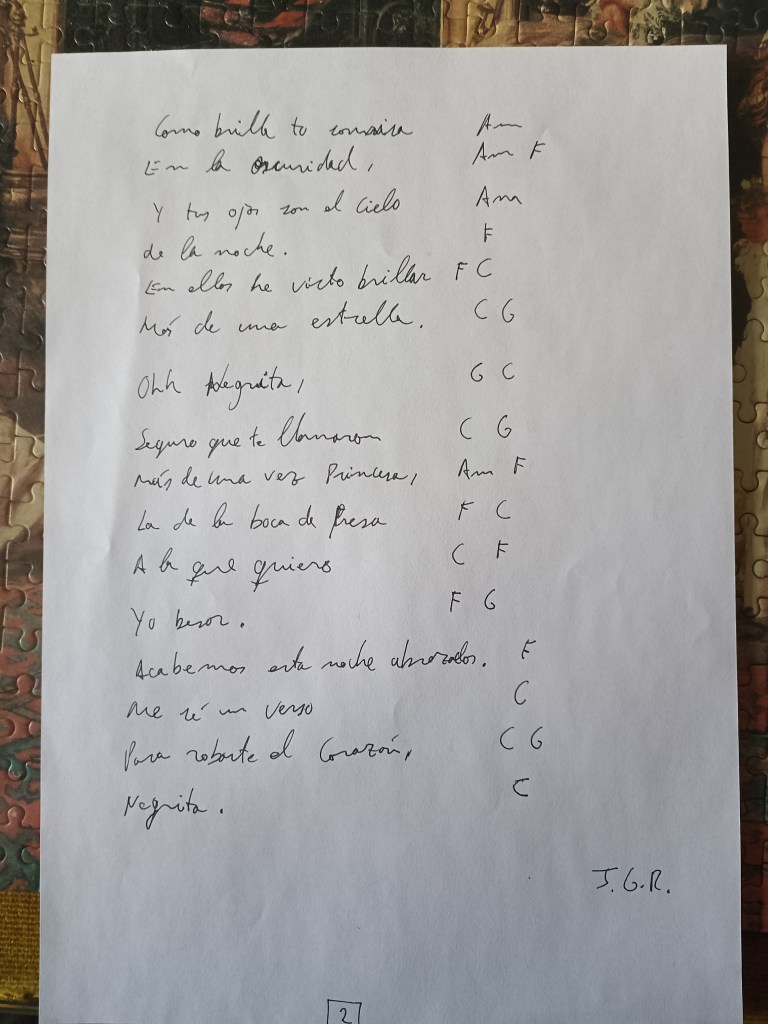 Como brilla tu sonrisa Am
En la oscuridad, Am F
Y tus ojos son el cielo Am
de la noche. F
En ellos he visto brillar F C
Más de una estrella. C G
Ohh Negrita, G C
Seguro que te llamaron C G
más de una vez Princesa, Am F
La de la boca de fresa F C
A la que quiero C F
Yo besar. F G
Acabemos esta noche abrazados. F
Me sé un verso C
Para robarte el Corazón, C G
Negrita. C
J.G.R.
2